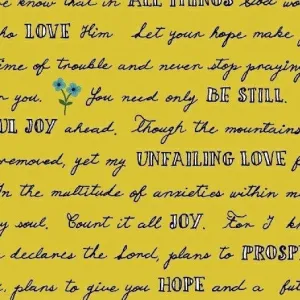 we know that in ALL THINGS God wo
ho LOVE Him Let your hope make y
time of trouble and never stop praying
or you. You need only BE STILL.
UL JOY ahead. Though the mountains
removed, yet my UNFAILING LOVE f
In the multitude of anxieties within m
y soul. Count it all JOY. For I kn
declares the Lord, plans to PROSP
, plans to give you HOPE and a fut